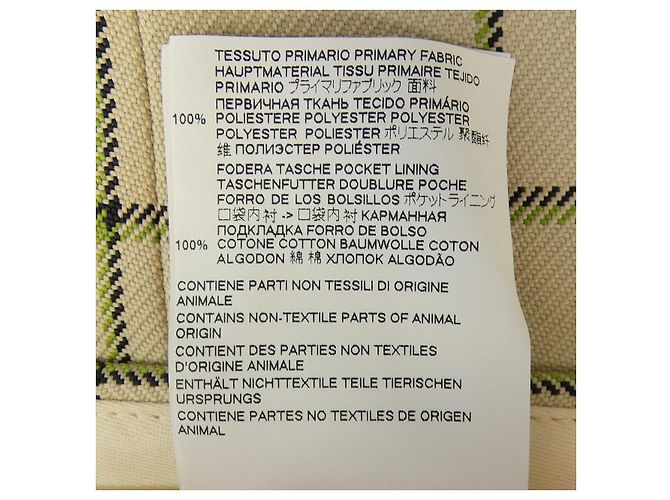 TESSUTO PRIMARIO PRIMARY FABRIC
HAUPTMATERIAL TISSU PRIMAIRE TEJIDO
PRIMARIO プライマリファブリック 面料
ПЕРВИЧНАЯ ТКАНЬ TECIDO PRIMÁRIO
100% POLIESTERE POLYESTER POLYESTER
POLYESTER POLIESTER ポリエステル 聚酯纤
维 ПОЛИЭСТЕР POLIÉSTER
FODERA TASCHE POCKET LINING
TASCHENFUTTER DOUBLURE POCHE
FORRO DE LOS BOLSILLOS ポケットライニング
口袋内衬 -> 口袋内衬 КАРМАННАЯ
ПОДКЛАДКА FORRO DE BOLSO
100% COTONE COTTON BAUMWOLLE COTON
ALGODON 綿 棉 ХЛОПОК ALGODÃO
CONTIENE PARTI NON TESSILI DI ORIGINE
ANIMALE
CONTAINS NON-TEXTILE PARTS OF ANIMAL
ORIGIN
CONTIENT DES PARTIES NON TEXTILES
D'ORIGINE ANIMALE
ENTHÄLT NICHTTEXTILE TEILE TIERISCHEN
URSPRUNGS
CONTIENE PARTES NO TEXTILES DE ORIGEN
ANIMAL